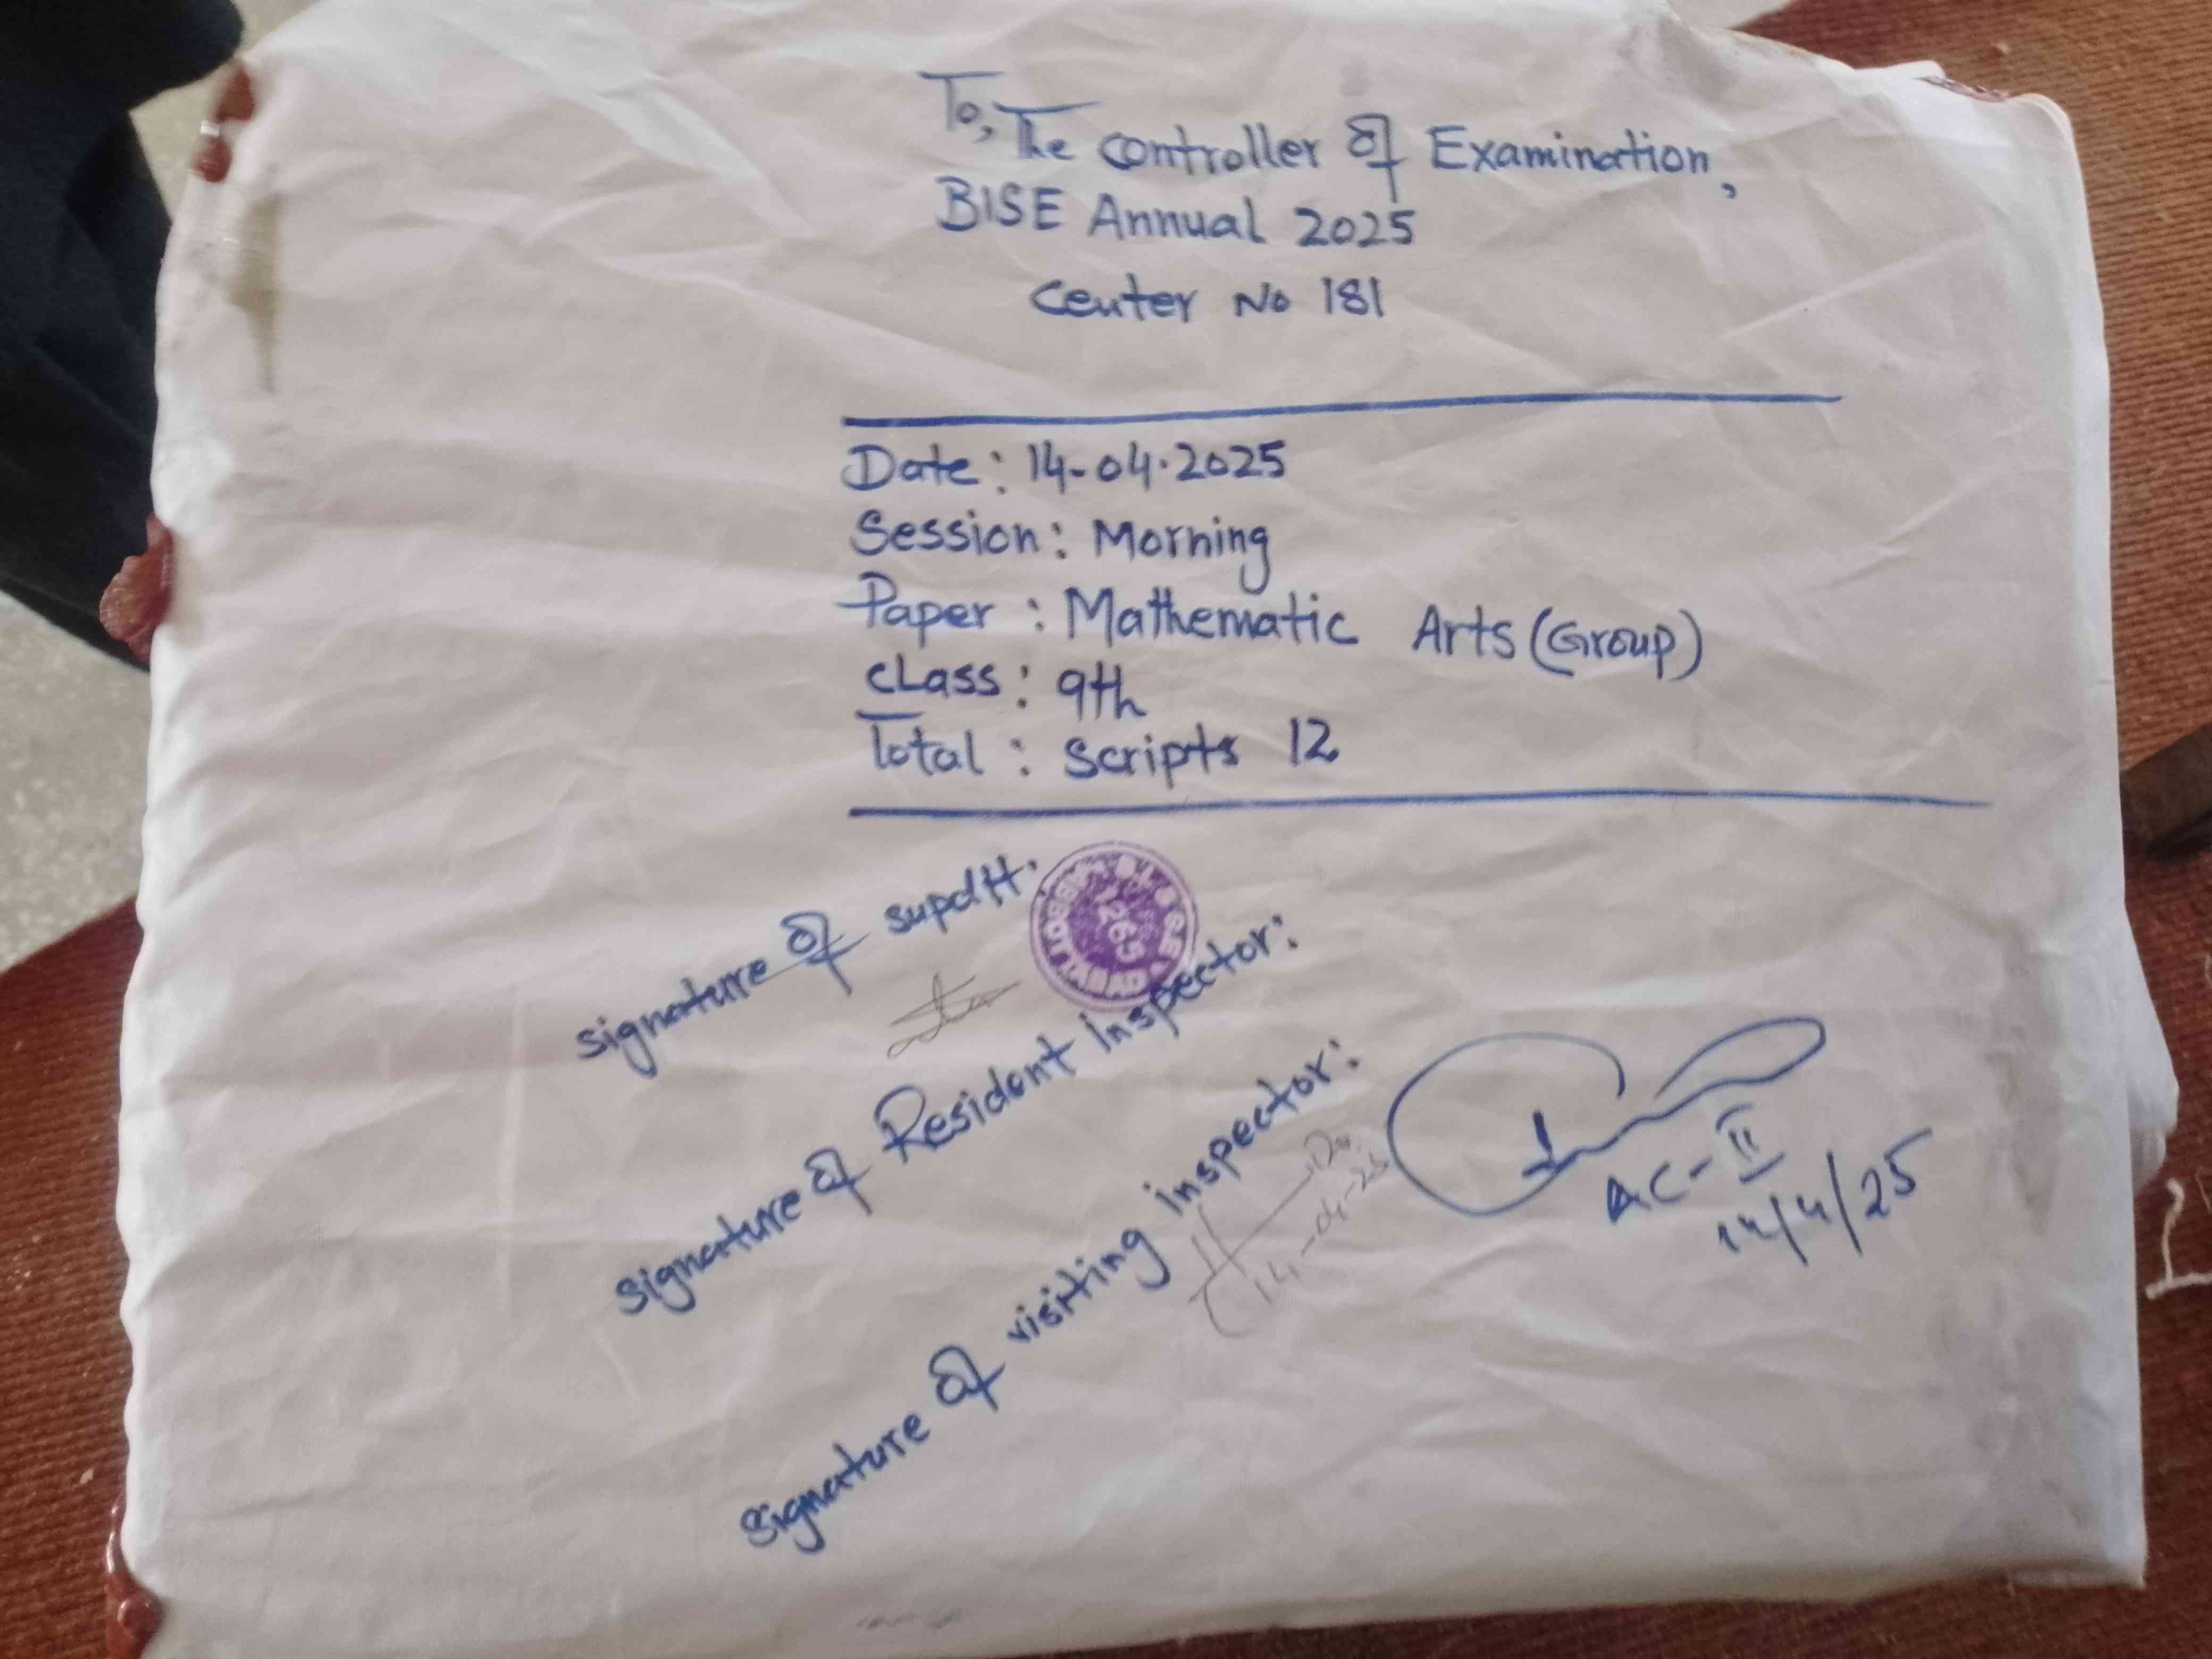 To, The controller of Examination,
BISE Annual 2025
Center No 181
Date: 14-04-2025
Session: Morning
Paper: Mathematic Arts (Group)
CLass: 9th
Total: Scripts 12
signature of supdtt.
signature of Resident inspector:
signature of visiting inspector:
14-04-25
AC-II
14/4/25